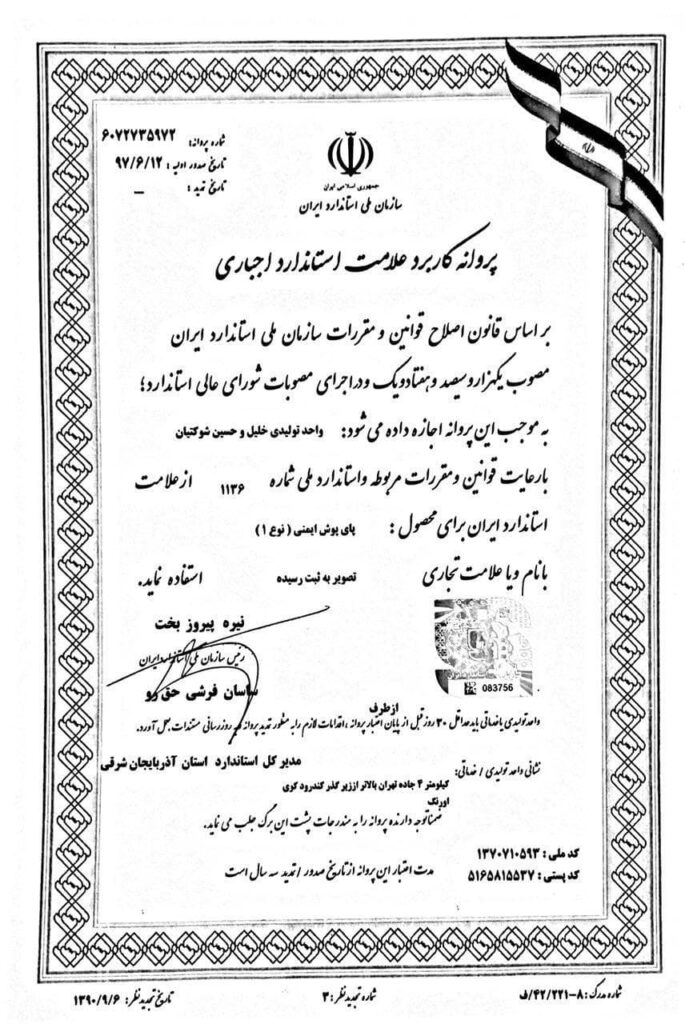 شماره پروانه: ۶۰۷۲۷۳۵۹۷۲
تاریخ صدور اولیه: ۹۷/۶/۱۲
تاریخ تمدید: _
جمهوری اسلامی ایران
سازمان ملی استاندارد ایران
پروانه کاربرد علامت استاندارد اجباری
بر اساس قانون اصلاح قوانین و مقررات سازمان ملی استاندارد ایران
مصوب یکهزار و سیصد و هفتاد و یک و در اجرای مصوبات شورای عالی استاندارد؛
به موجب این پروانه اجازه داده می شود: واحد تولیدی خلیل و حسین شوکتیان
با رعایت قوانین و مقررات مربوطه و استاندارد ملی شماره ۱۱۳۶ از علامت
استاندارد ایران برای محصول: پای پوش ایمنی (نوع ۱)
با نام و یا علامت تجاری تصویر به ثبت رسیده استفاده نماید.
نیره پیروز بخت
رئیس سازمان ملی استاندارد ایران
ساسان فرشی حق رو
083756
از طرف
واحد تولیدی یا خدماتی باید حداقل ۳۰ روز قبل از پایان اعتبار پروانه، اقدامات لازم را به منظور تمدید پروانه و به روزرسانی مستندات بعمل آورد.
مدیر کل استاندارد استان آذربایجان شرقی
نشانی واحد تولیدی / خدماتی:
کیلومتر ۴ جاده تهران بالاتر اززیر گذر کندرود کوی
اورنگ
ضمنا توجه دارنده پروانه را به مندرجات پشت این برگ جلب می نماید.
کد ملی: ۱۳۷۰۷۱۰۵۹۳
کد پستی: ۵۱۶۵۸۱۵۵۳۷
مدت اعتبار این پروانه از تاریخ صدور / تمدید سه سال است
شماره مدرک: ۸-۴۲/۲۲۱/ف
شماره تجدید نظر: ۳
تاریخ تجدید نظر: ۱۳۹۰/۹/۶